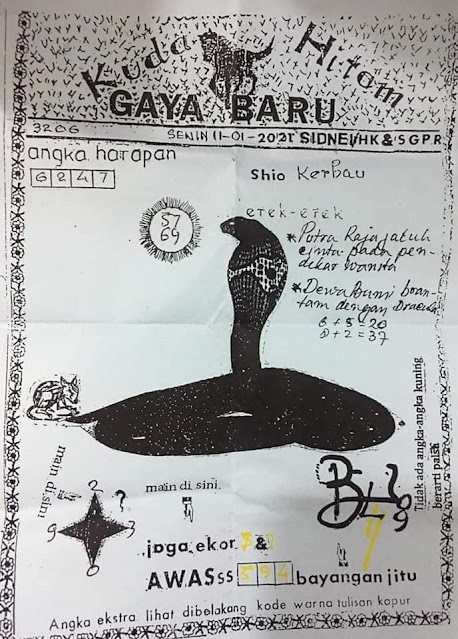 Kuda Hitam
GAYA BARU
3206
SENIN 11-01-2021 SIDNEI/HK & SGPR
angka harapan
6 2 4 7
Shio Kerbau
57
69
erek-erek
* Putra Raja jatuh
cinta pada pen-
dekar wanita
* Dewa Bumi
tam dengan Dracula
6 + 5 = 20
8 + 2 = 37
main di sini
2
?
9 3
0
main di sini
Tidak ada angka-angka kuning
berarti palsu
joga ekor &
AWASss 594 bayangan jitu
Angka ekstra lihat dibelakang kode warna tulisan kapur